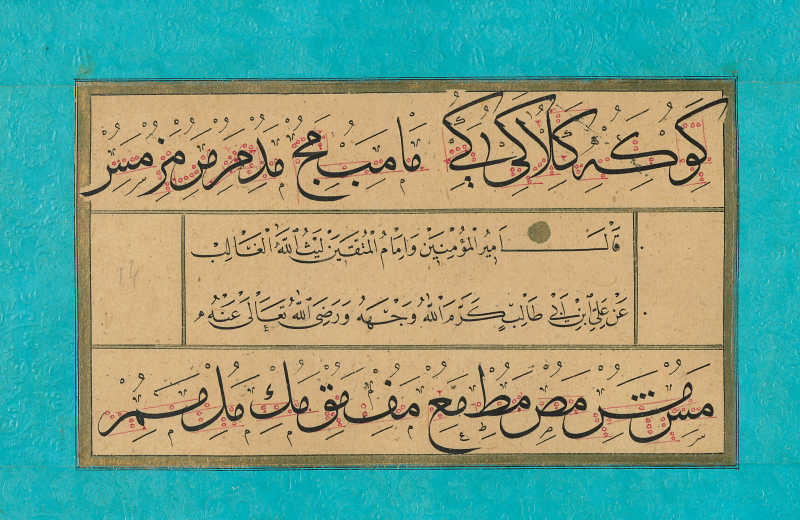 كو كه كلا كى كے ما مب مج مد مر مس
قَالَ اَمِيرُ الْمُؤْمِنِينَ وَاِمَامُ الْمُتَّقِينَ لَيْثُ اللّٰهِ الْغَالِبْ
عَنْ عَلِيِّ ابْنِ اَبِى طَالِبْ كَرَّمَ اللّٰهُ وَجْهَهُ وَرَضِىَ اللّٰهُ تَعَالَى عَنْهُ
مس مص مط مع مف مق مك مل مم